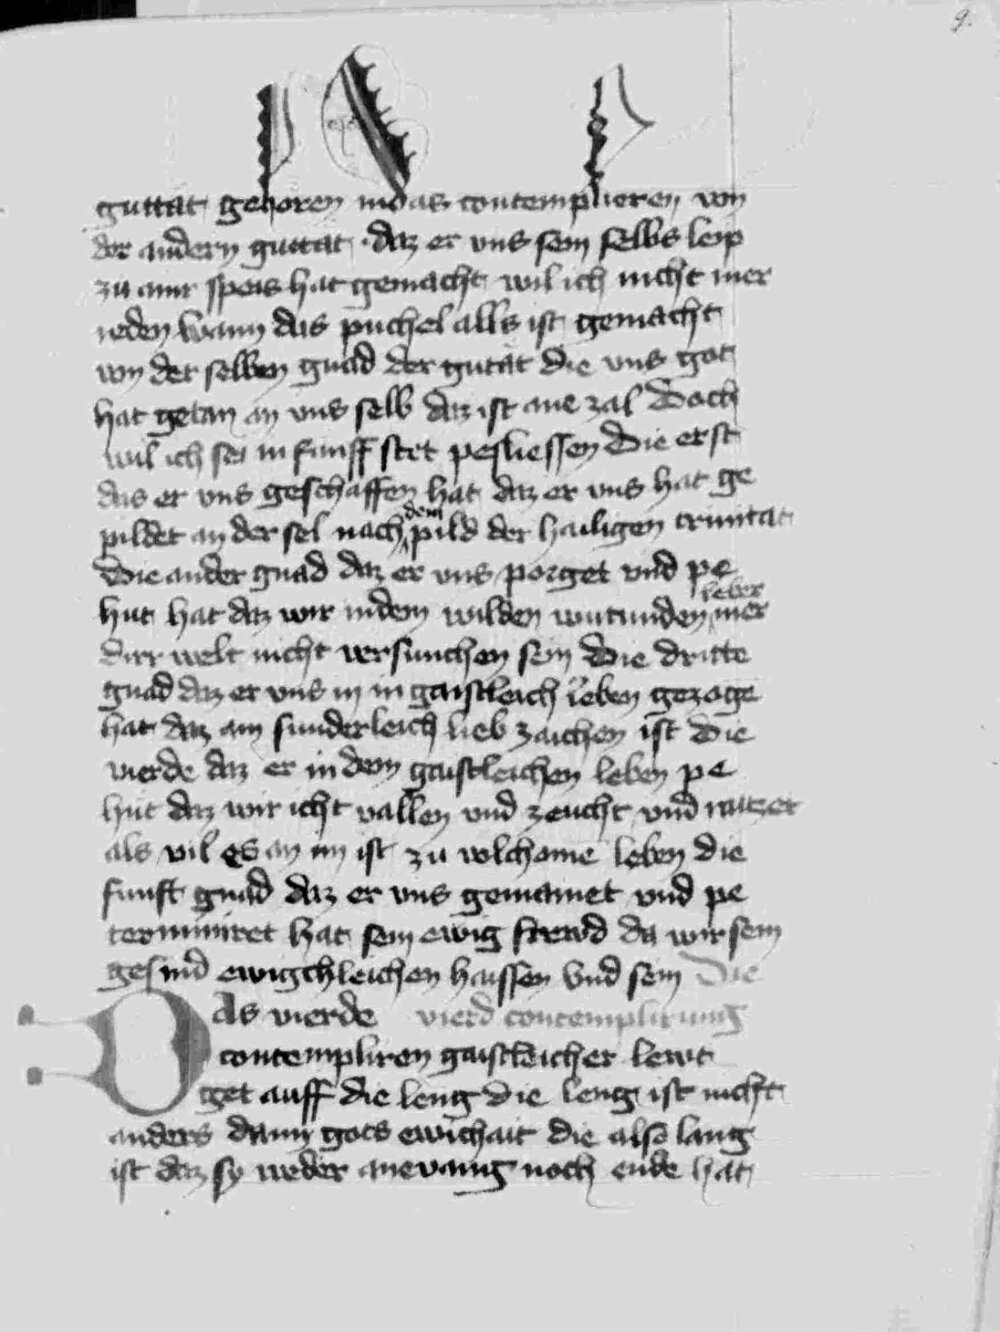 9.
guttat gehoren in das contemplieren von
der andern guttat · daz er uns sein selbs leip
zu ainr speis hat gemacht wil ich nicht mer
reden wann das puchel alls ist gemacht
von der selben gnad der gutat die uns got
hat getan an uns selb daz ist ane zal Doch
wil ich sei in funff stet pesliessen Die erst
das er uns geschaffen hat daz er uns hat ge
pildet an der sel nach dem pild der hailigen trinitat
Die ander gnad daz er uns porget und pe
hut hat daz wir in dem wilden wutunden leber mer
dirr welt nicht versunchen sein Die dritte
gnad daz er uns in in gaistleich leben gezoge
hat daz ain sunderleich lieb zaichen ist Die
vierde daz er in dem gaistleichen leben pe
hut daz wir icht vallen und zeucht und raitzet
als vil es an im ist zu volchome leben die
funft gnad daz er uns gemainet und pe
terminiret hat sein ewig frewd da wir sein
gesind ewigchleichen haissen und sein Die
Das vierde vierd contemplirung
contempliren gaistleicher lewt
get auff die leng die leng ist nicht
anders dann gots ewichait die also lang
ist daz sy weder anevang noch ende hat